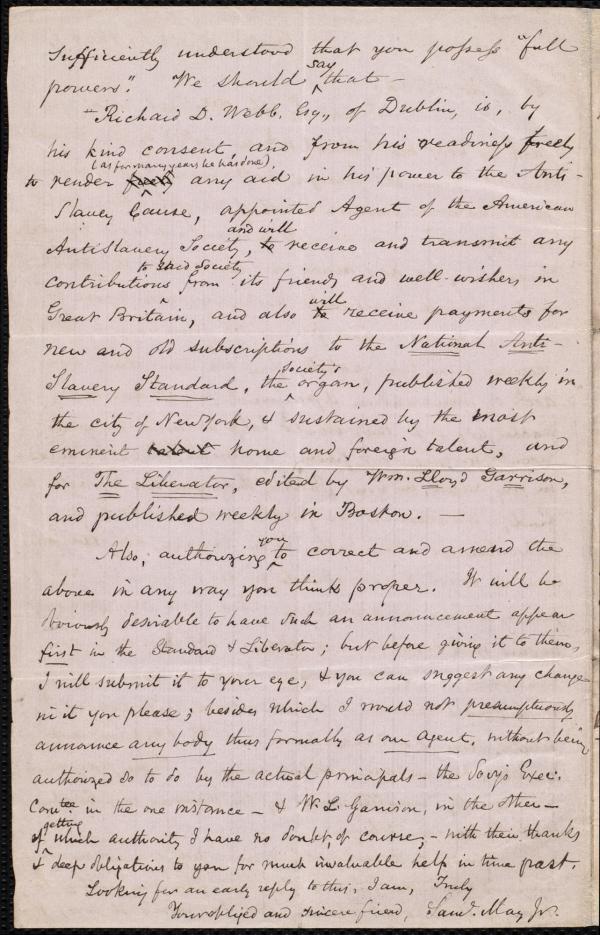 sufficiently understood that you possess "full
powers." We should say that —
"Richard D. Webb, Esq., of Dublin, is, by
his kind consent, and from his readiness freely
(as for many years he has done),
to render any aid in his power to the Anti-
Slavery Cause, appointed Agent of the American
AntiSlavery Society, and will receive and transmit any
contributions to said Society from its friends and well-wishers in
Great Britain, and also will receive payments for
new and old subscriptions to the National Anti-
Slavery Standard, the Society's organ, published weekly in
the city of New York, & sustained by the most
eminent home and foreign talent, and
for The Liberator, edited by Wm. Lloyd Garrison,
and published weekly in Boston. —
Also, authorizing you to correct and amend the
above in any way you think proper. It will be
obviously desirable to have such an announcement appear
first in the Standard & Liberator; but before giving it to them,
I will submit it to your eye, & you can suggest any change
in it you please; besides which I would not presumptuously
announce any body thus formally as our Agent, without being
authorized so to do by the actual principals — the Soc'y's Exec.
Comtee. in the one instance — & W. L. Garrison, in the other —
of getting which authority I have no doubt, of course, — with their thanks
& deep obligations to you for much invaluable help in time past.
Looking for an early reply to this, I am, Truly
Your obliged and sincere friend, Saml. May Jr.